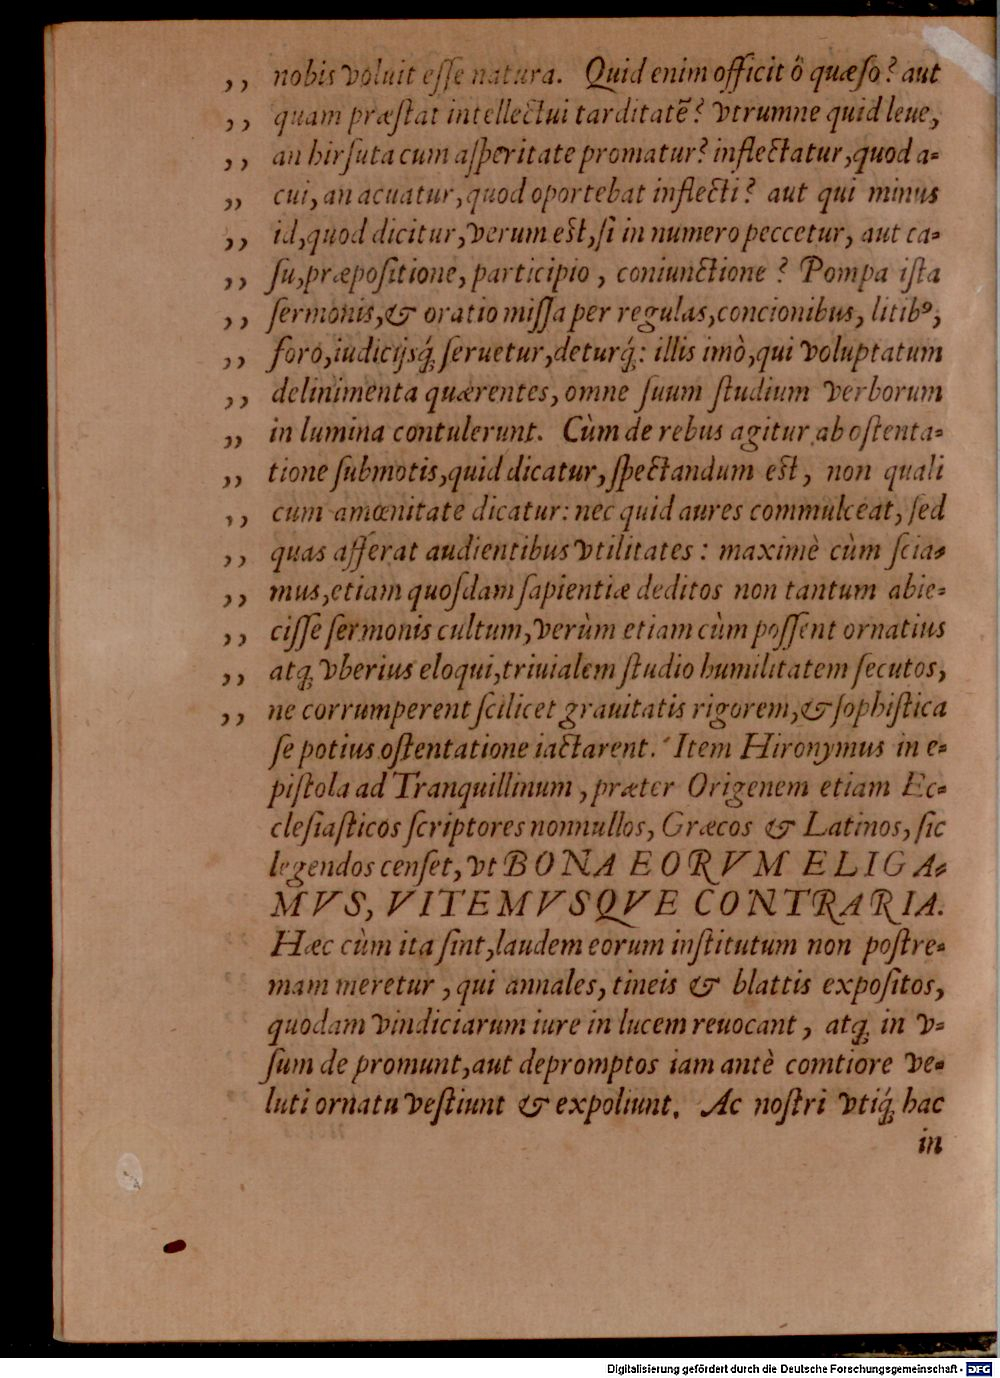 ,, nobis voluit eſſe natura. Quid enim officit ô quæſo? aut
,, quam præſtat intellectui tarditatẽ? vtrumne quid leue,
,, an hirſuta cum aſperitate promatur? inflectatur, quod a=
,, cui, an acuatur, quod oportebat inflecti? aut qui minus
,, id, quod dicitur, verum est, ſi in numero peccetur, aut ca=
,, ſu, præpoſitione, participio, coniunctione? Pompa iſta
,, ſermonis, & oratio miſſa per regulas, concionibus, litibꝰ,
,, foro, iudicijsq́; ſeruetur, deturq́;: illis imò, qui voluptatum
,, delinimenta quærentes, omne ſuum ſtudium verborum
,, in lumina contulerunt. Cùm de rebus agitur ab oſtenta=
,, tione ſubmotis, quid dicatur, ſpectandum est, non quali
,, cum amœnitate dicatur: nec quid aures commulceat, ſed
,, quas afferat audientibus vtilitates: maximè cùm ſcia=
,, mus, etiam quoſdam ſapientiæ deditos non tantum abie=
,, ciſſe ſermonis cultum, verùm etiam cùm poſſent ornatius
,, atq; vberius eloqui, triuialem ſtudio humilitatem ſecutos,
,, ne corrumperent ſcilicet grauitatis rigorem, & ſophiſtica
ſe potius oſtentatione iactarent. Item Hironymus in e=
piſtola ad Tranquillinum, præter Origenem etiam Ec=
cleſiaſticos ſcriptores nonnullos, Græcos & Latinos, ſic
legendos cenſet, vt BONA EORVM ELIGA=
MVS, VITEMVSQVE CONTRARIA.
Hæc cùm ita ſint, laudem eorum inſtitutum non poſtre=
mam meretur, qui annales, tineis & blattis expoſitos,
quodam vindiciarum iure in lucem reuocant, atq; in v=
ſum de promunt, aut depromptos iam antè comtiore ve=
luti ornatu veſtiunt & expoliunt. Ac noſtri vtiq́; hac
in
Digitalisierung gefördert durch die Deutsche Forschungsgemeinschaft - DFG